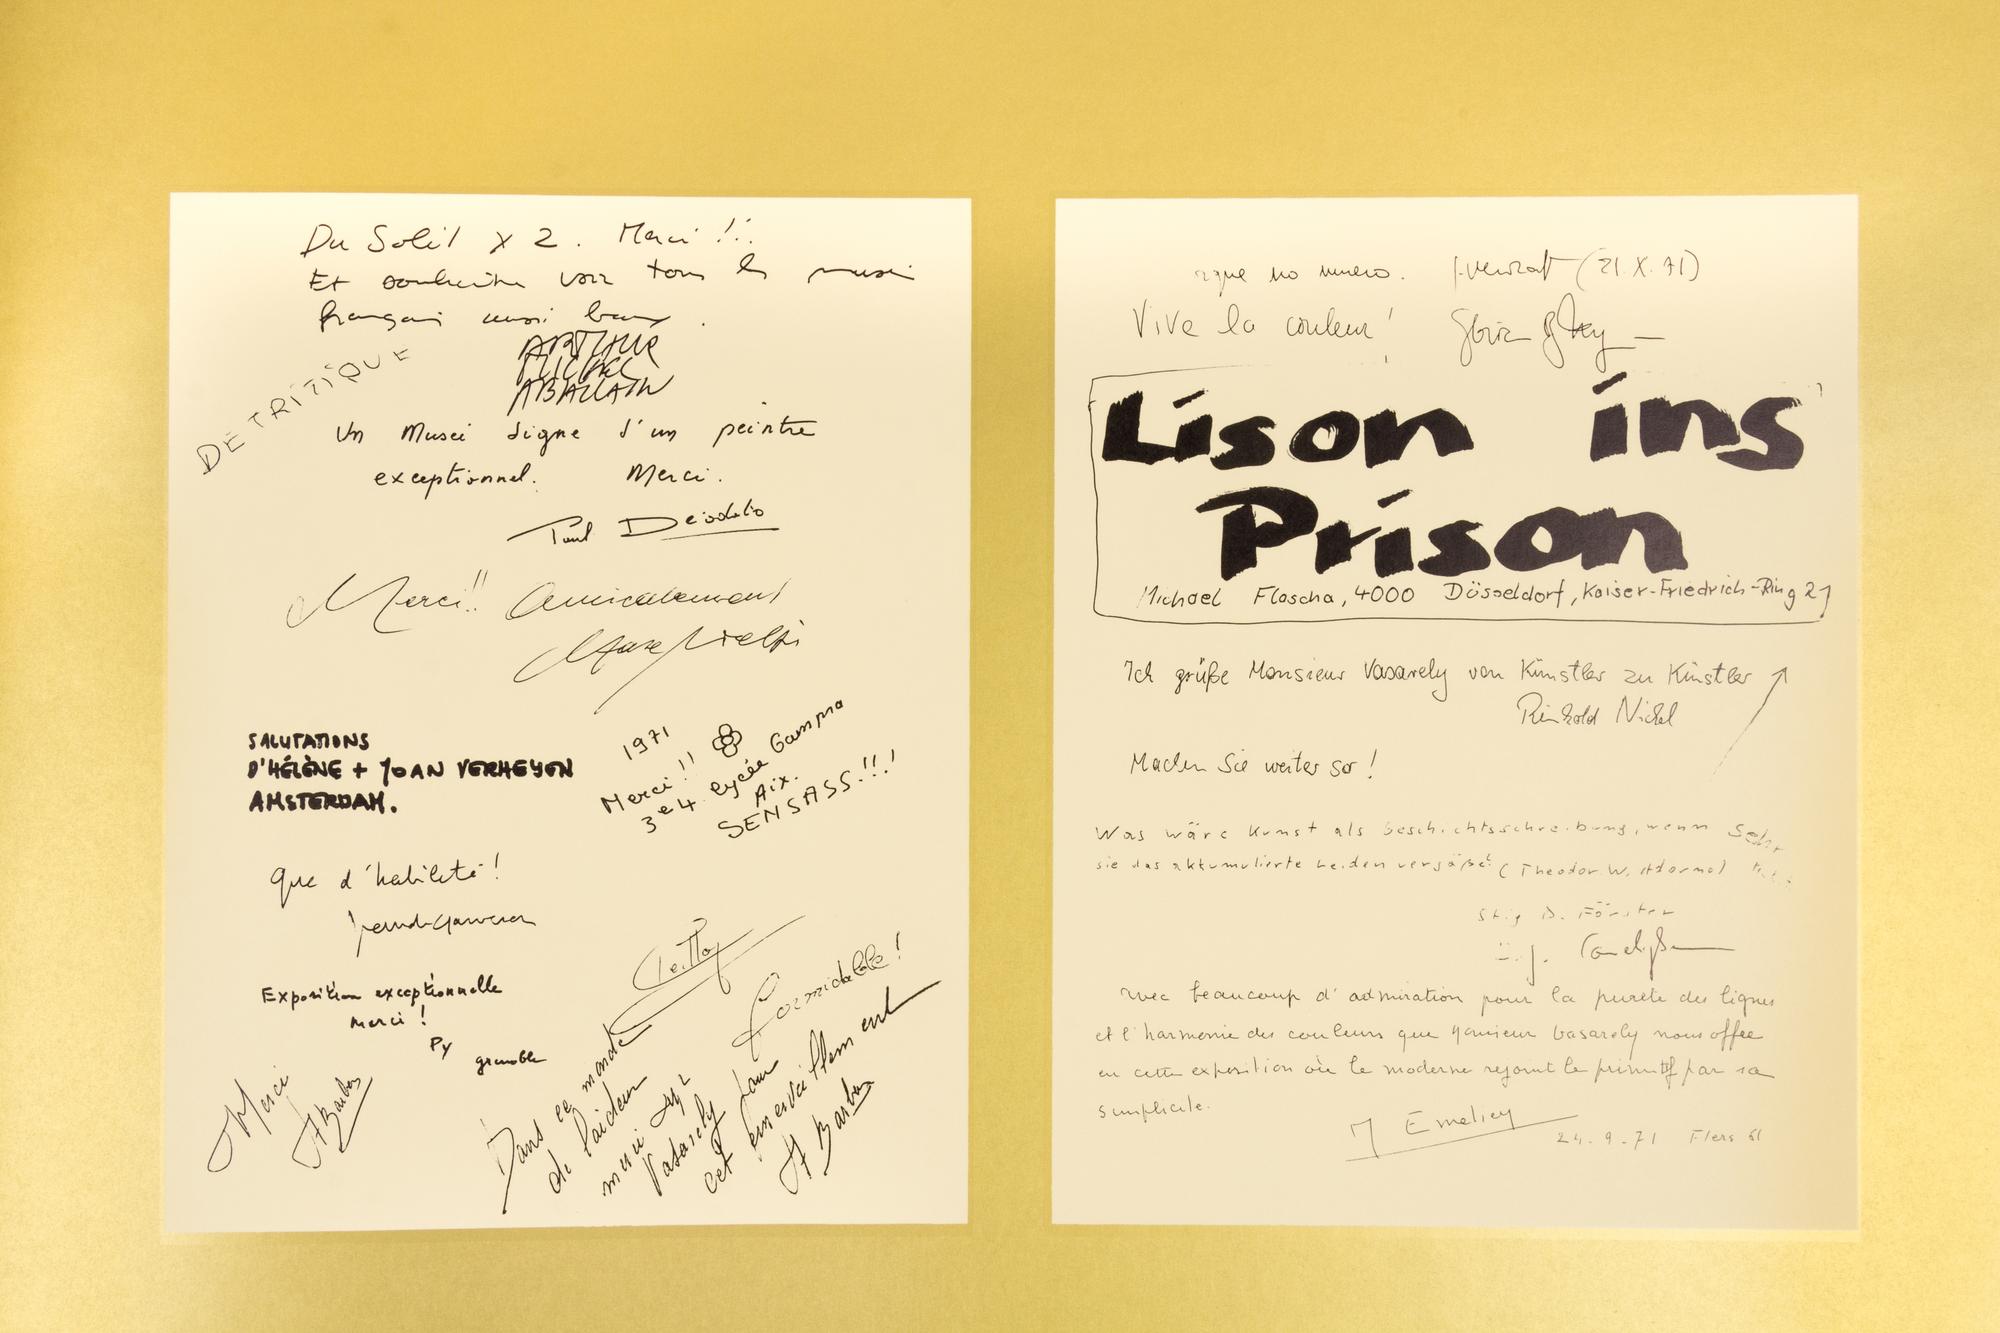 Du Soleil x 2. Merci !!.
Et souhaite voir tous les
français aussi beaux.
DÉTRITIQUE
ARTHUR
MICHEL
ABALLAIN
Un Museé digne d'un peintre
exceptionnel. Merci.
Paul
Merci!! Amicalement
SALUTATIONS
D'HÉLÈNE + JOAN VERHEYEN
AMSTERDAM.
1971
Merci!!
3e4 lycée Campra
Aix.
SENSASS!!!!
que d'habileté!
Exposition exceptionnelle
merci!
Py
grenoble
Merci
A Barbou
Formidable!
Dans ce monde
de laideur
merci
Vasarely pour
cet émerveillement
A Barbou
(21.X.71)
Vive la couleur!
Lison ins
Prison
Michael Flascha, 4000 Düsseldorf, Kaiser-Friedrich-Ring 21
Ich grüße Monsieur Vasarely von Künstler zu Künstler
Reinhold Nickel
Machen Sie weiter so!
Was wäre Kunst als Geschichtsschreibung, wenn
sie das akkumulierte Leiden vergäße? (Theodor W. Adorno)
Stig D. Förster
avec beaucoup d'admiration pour la pureté des lignes
et l'harmonie des couleurs que Monsieur Vasarely nous offre
en cette exposition où le moderne rejoint le primitif par sa
simplicité.
24.9.71 Flers 61